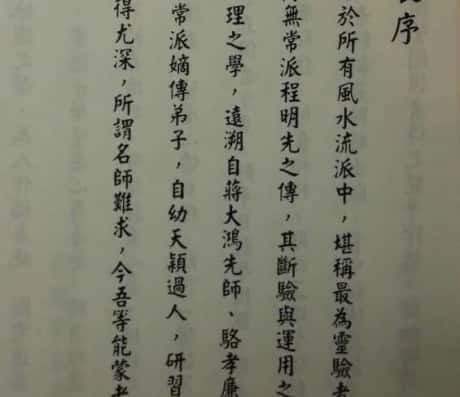 序
於所有風水流派中，堪稱最為靈驗者
無常派程明先之傳，其斷驗與運用之
理之學，遠溯自蔣大鴻先師、駱孝廉
常派嫡傳弟子，自幼天穎過人，研習
得尤深，所謂名師難求，今吾等能蒙者